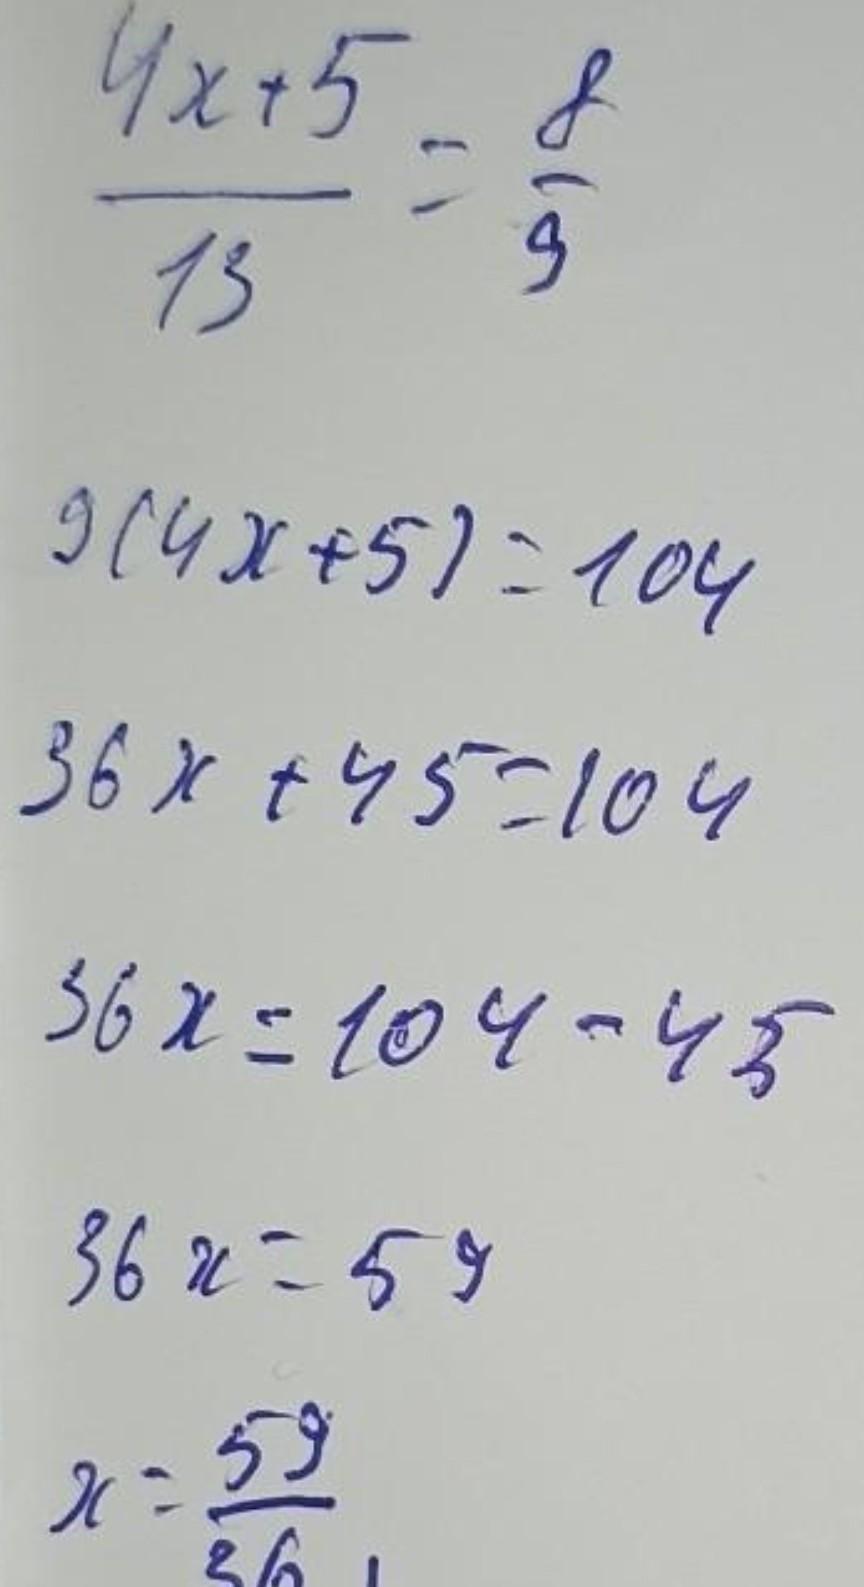 4x+5/13 = 8/9
9(4x+5)=104
36x+45=104
36x=104-45
36x=59
x=59/36